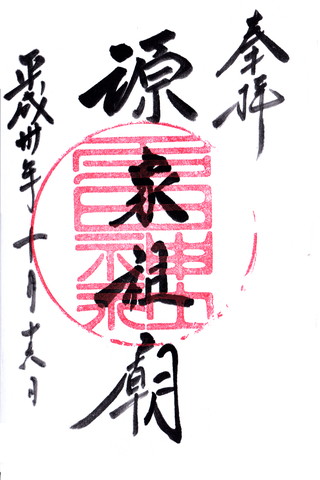 奉拝
源家祖廟
平成卅年十月十六日